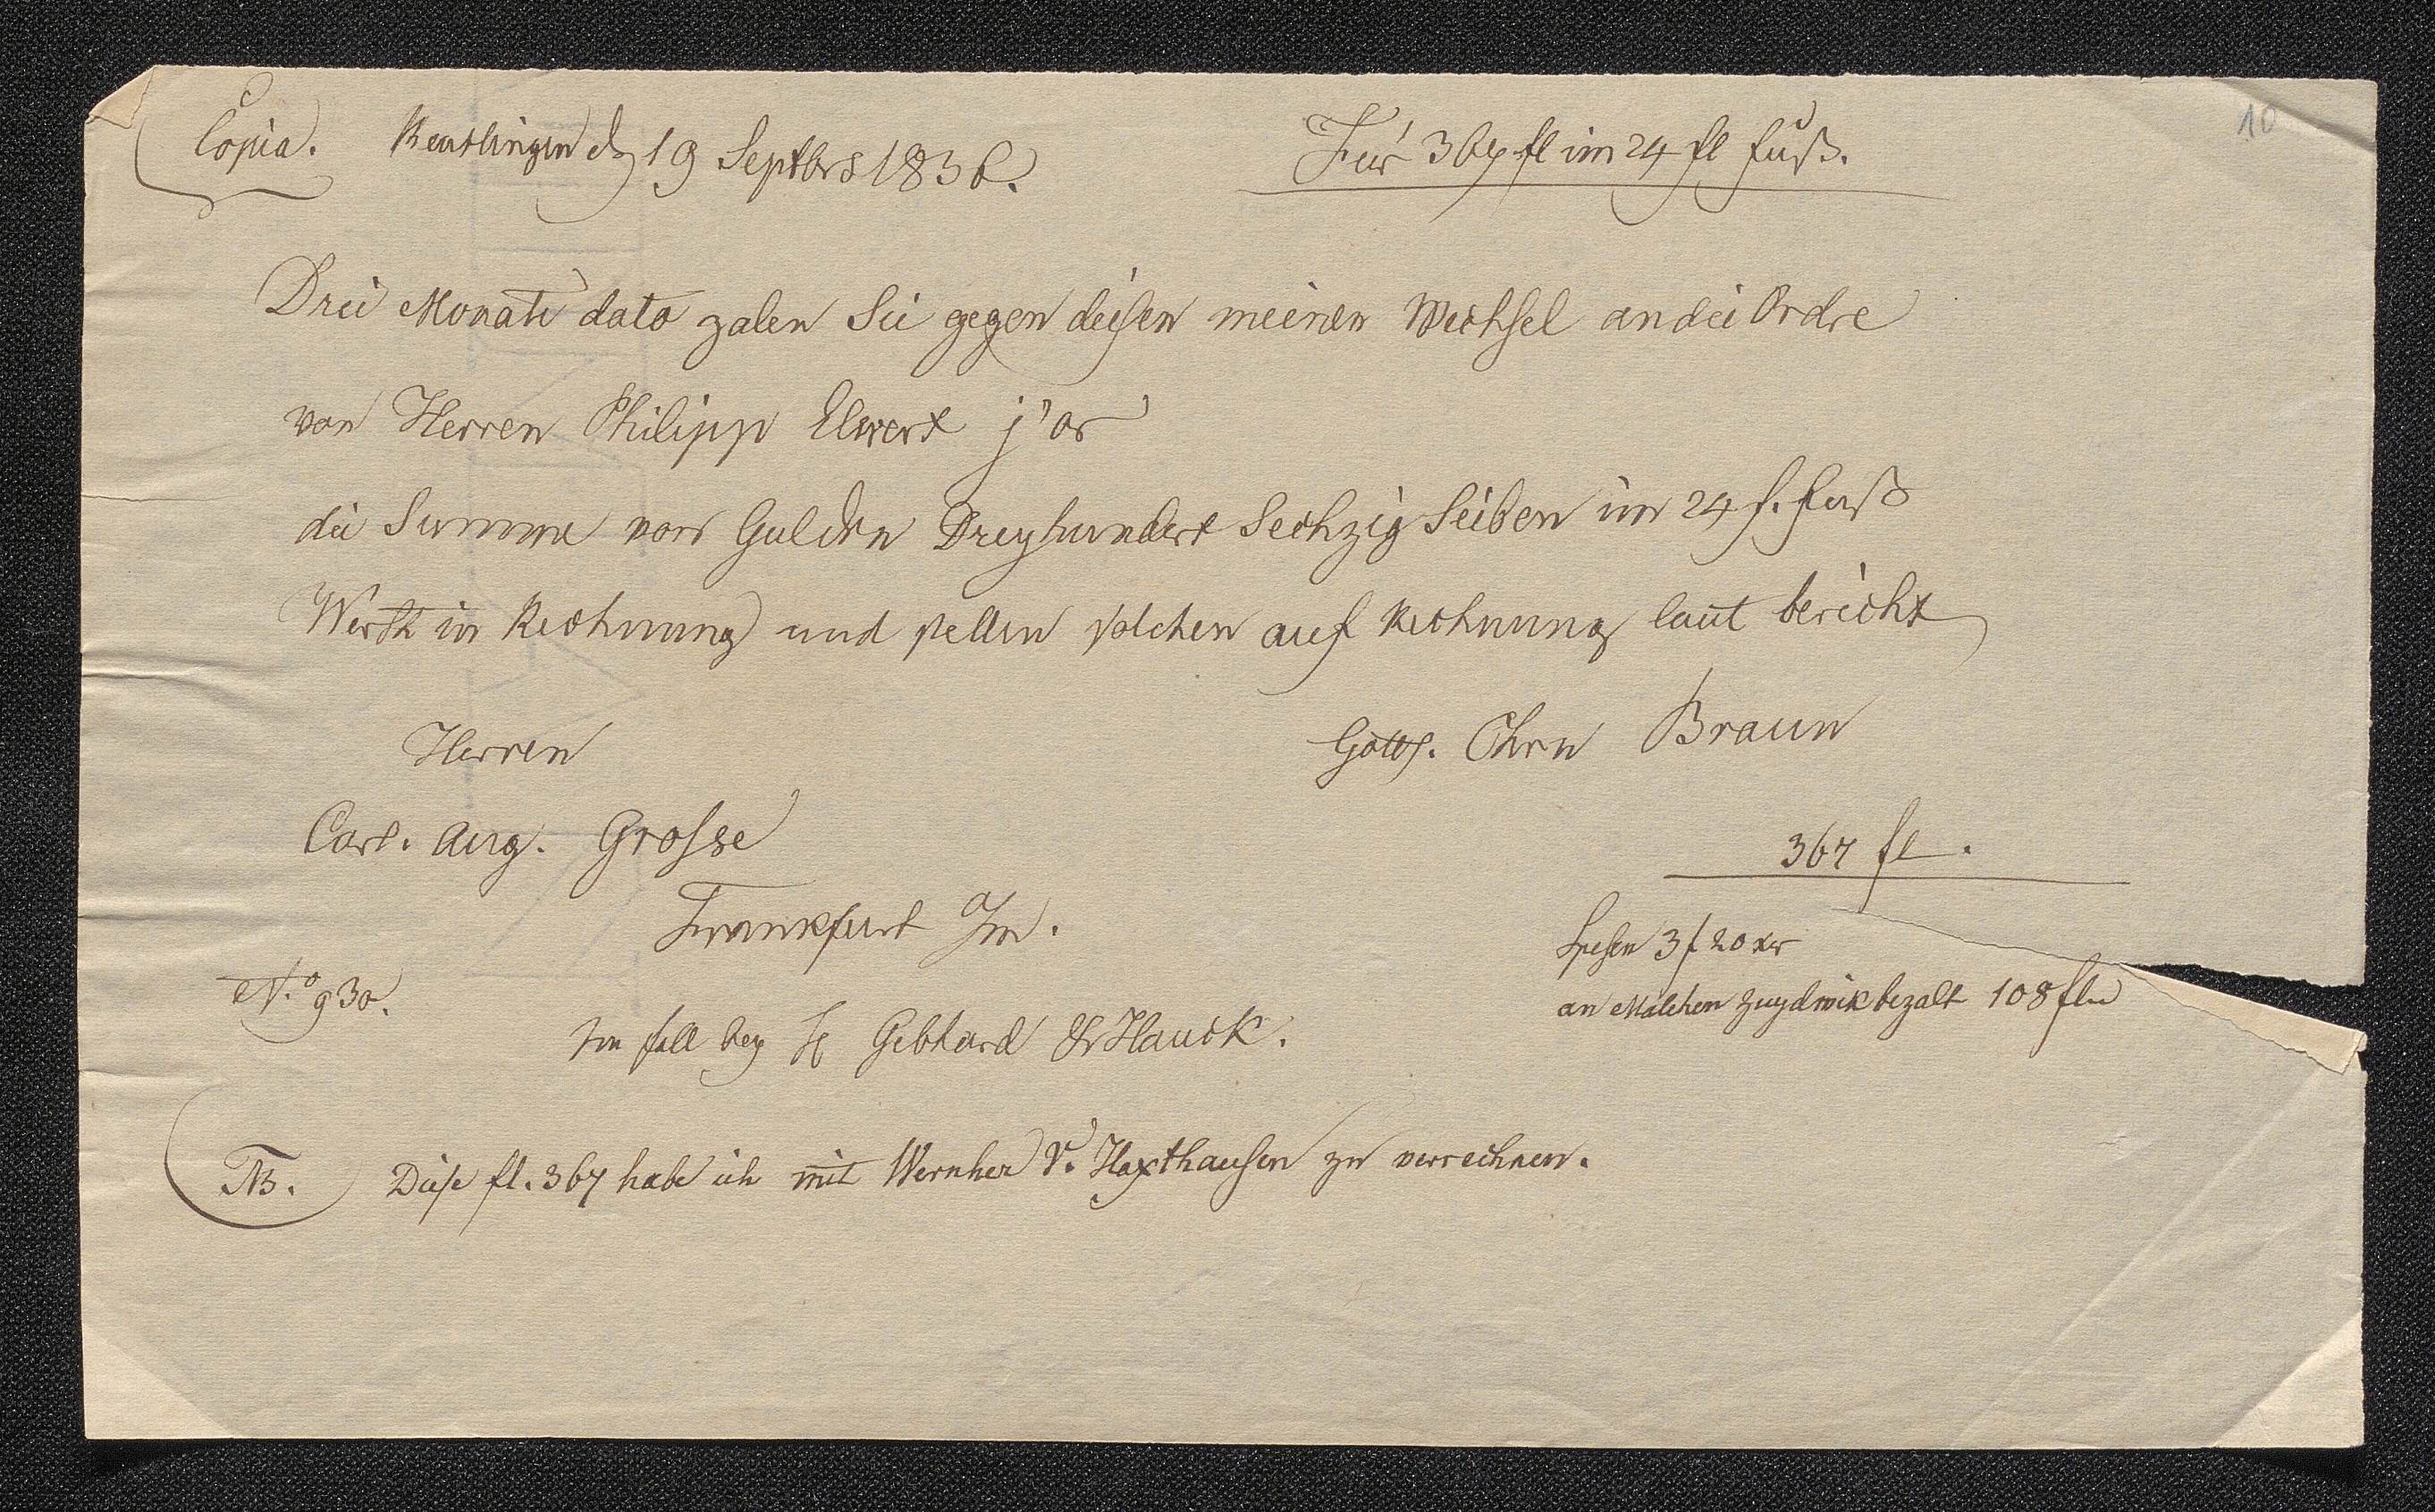 10
Copia. Reutlingen d 19 Septbrs 1836.
Für 367 fl im 24 fl fuß.
Drei Monate dato zalen Sie gegen diesen meinen Wechsel an die Ordre
von Herren Philipp Elwert j'or
die Summe von Gulden Dreyhundert Sechzig Sieben im 24 f. fuß
Werth in Rechnung und stellen solchen auf Rechnung laut bericht
Herren
Gottf. Chrn Braun
Carl. Aug. Grosse
367 fl.
Frankfurt
Spesen 3 f 20 xr
No 930.
an Malchen Zuydwik bezalt 108 fl
Im fall bey H Gebhard & Hauck.
NB. Diese fl. 367 habe ich mit Wernher v. Haxthausen zu verrechnen.